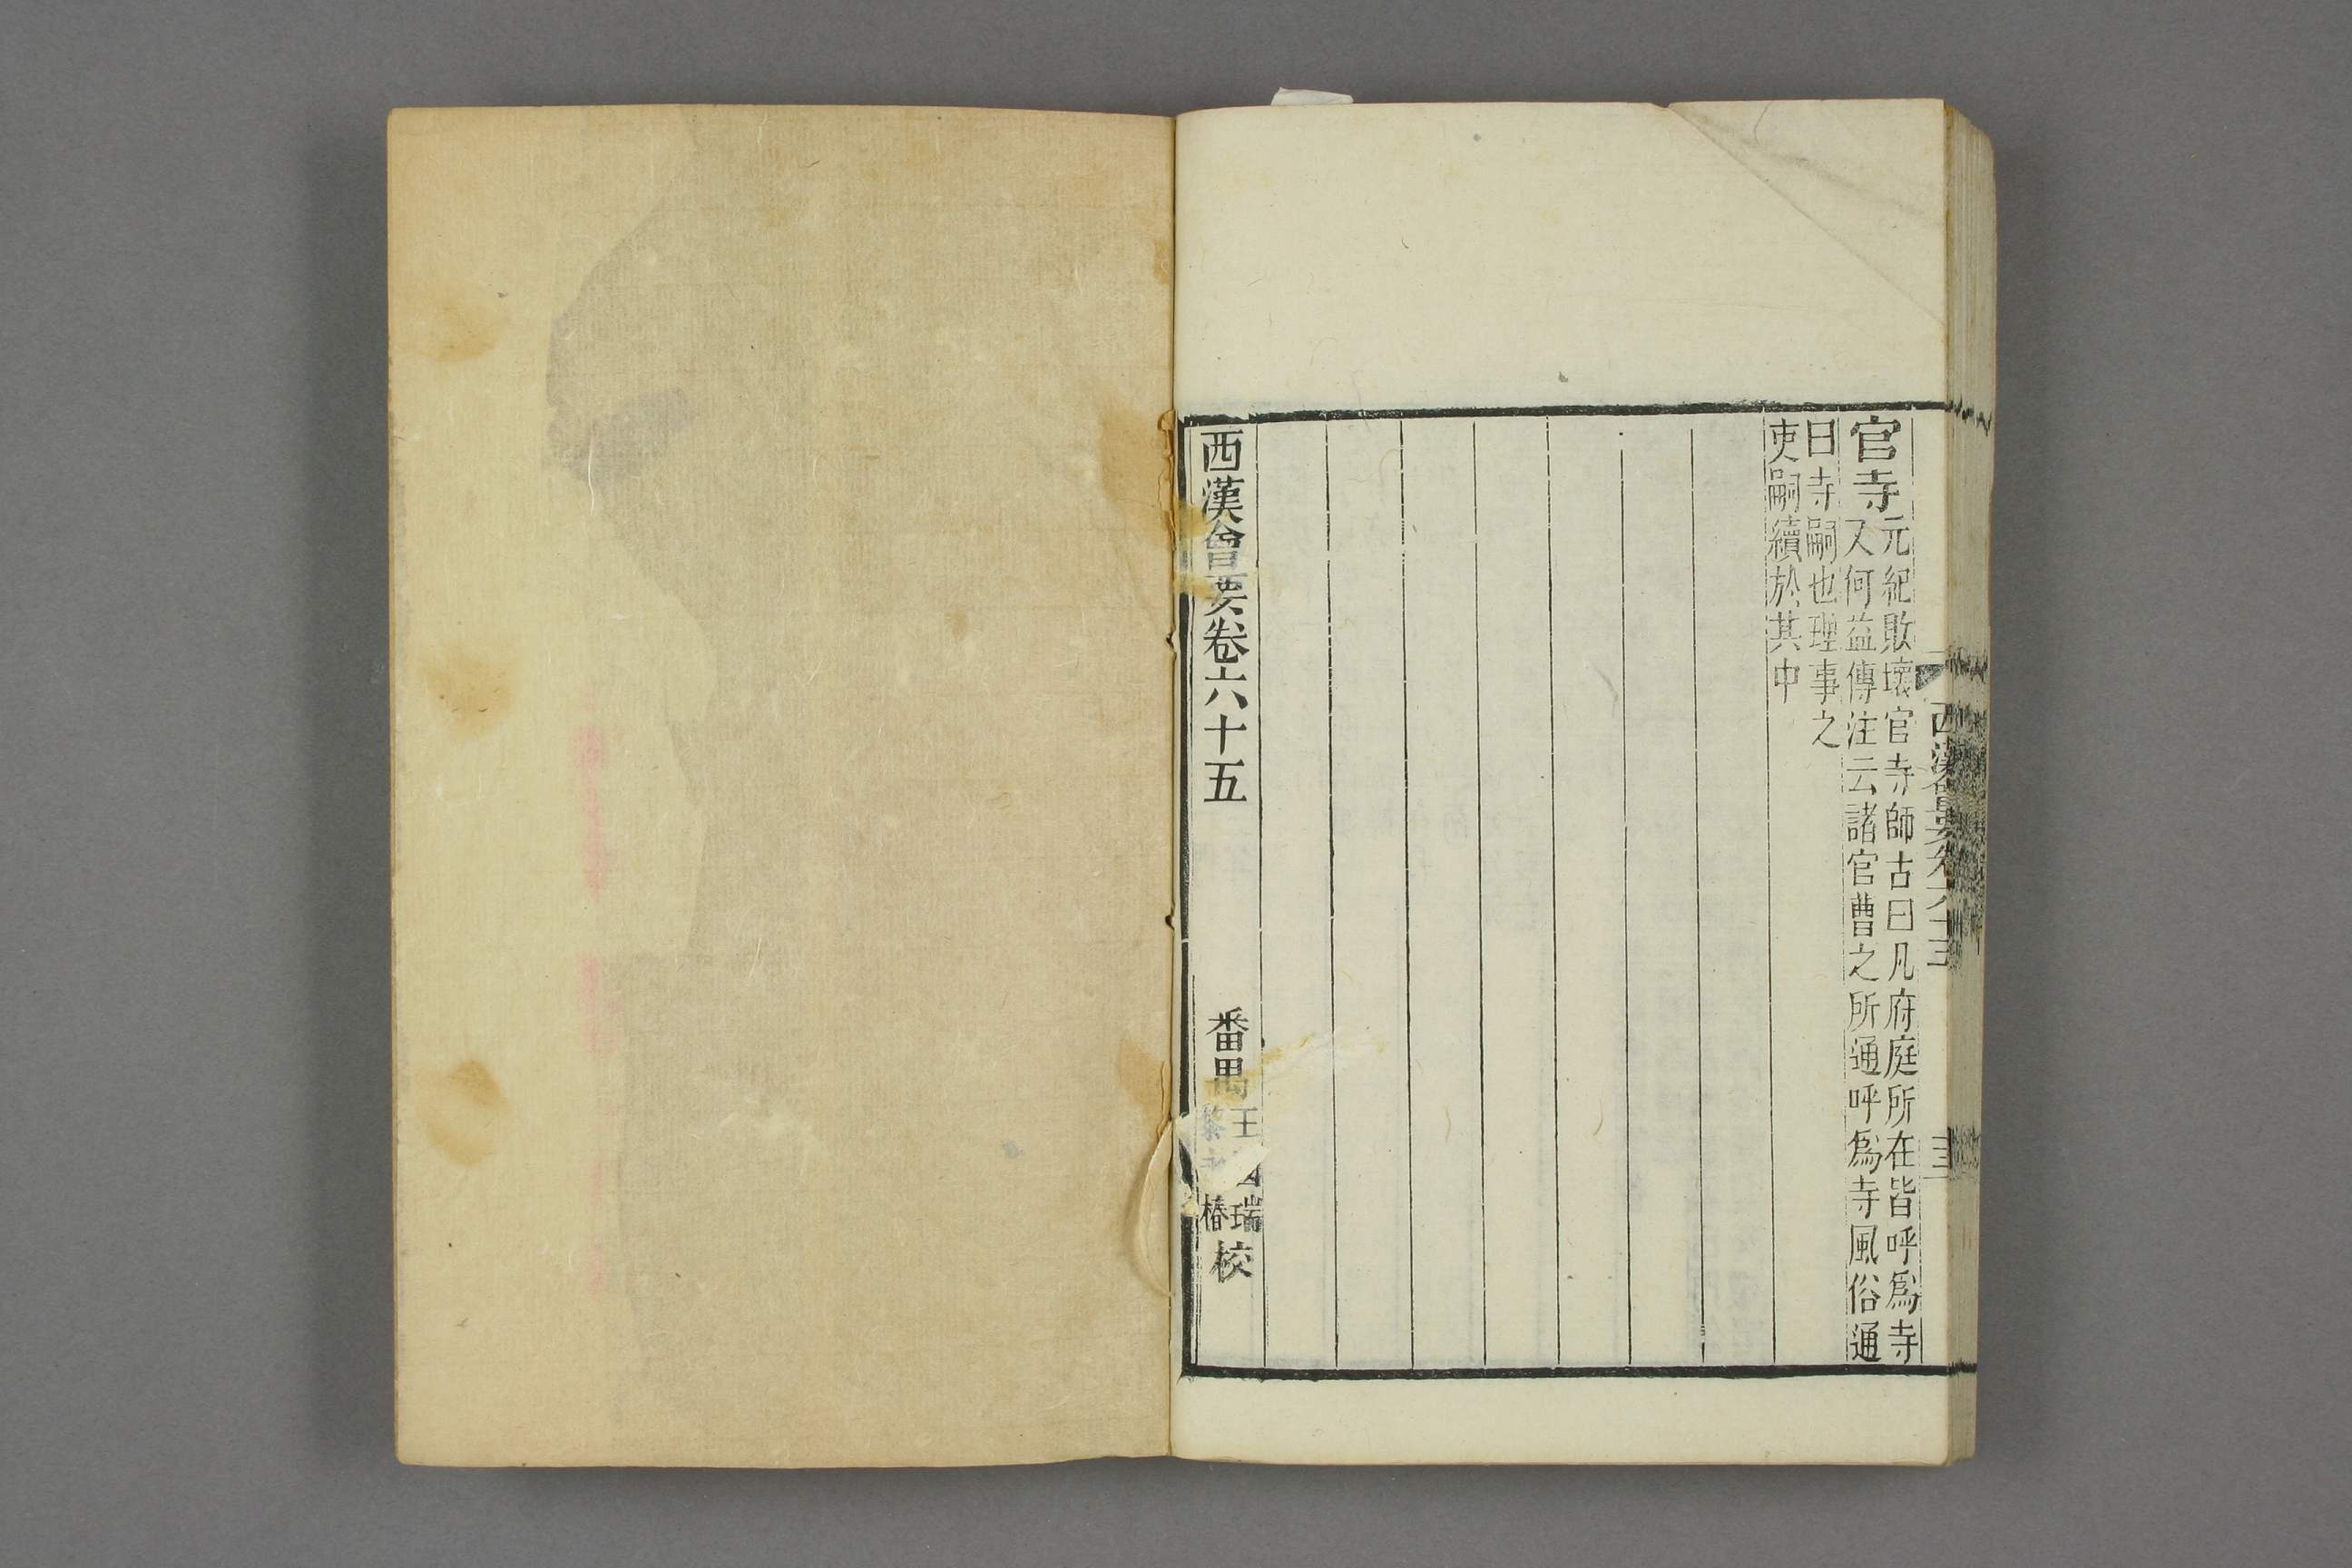 官寺
元紀敗壞官寺師古曰凡府庭所在皆呼爲寺
又何益傳注云諸官曹之所通呼爲寺風俗通
曰寺嗣也理事之
吏嗣續於其中
西漢會要卷六十五
番禺
王國瑞
黎永椿
校